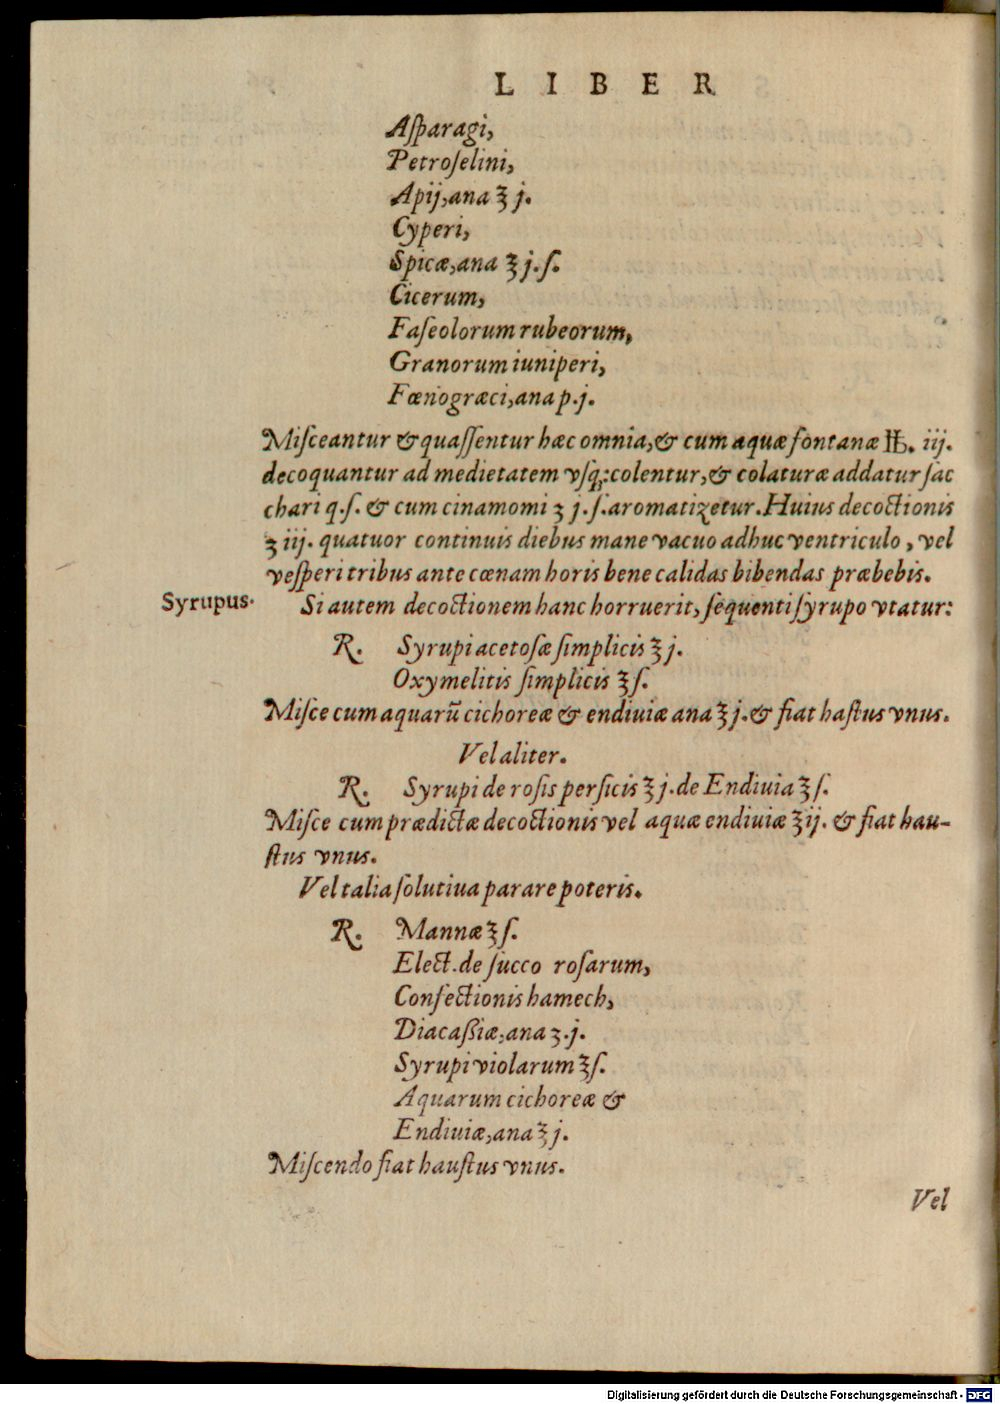 LIBER
Aſparagi,
Petroſelini,
Apij, ana ℥ j.
Cyperi,
Spicæ, ana ℥ j. ſ.
Cicerum,
Faſeolorum rubeorum,
Granorum iuniperi,
Fœnogræci, ana p. j.
Miſceantur & quaſſentur hæc omnia, & cum aquæ fontanæ ℔. iij.
decoquantur ad medietatem vſq; colentur, & colaturæ addatur ſac
chari q. ſ. & cum cinamomi ʒ j. ſ. aromatizetur. Huius decoctionis
℥ iij. quatuor continuis diebus mane vacuo adhuc ventriculo, vel
veſperi tribus ante cœnam horis bene calidas bibendas præbebis.
Syrupus.
Si autem decoctionem hanc horruerit, ſequenti ſyrupo vtatur:
R. Syrupi acetoſæ ſimplicis ℥ j.
Oxymelitis ſimplicis ℥ ſ.
Miſce cum aquarũ cichoreæ & endiuiæ ana ℥ j. & fiat hauſtus vnus.
Vel aliter.
R. Syrupi de roſis perſicis ℥ j. de Endiuia ℥ ſ.
Miſce cum prædictæ decoctionis vel aquæ endiuiæ ℥ ij. & fiat hau-
ſtus vnus.
Vel talia ſolutiua parare poteris.
R. Mannæ ℥ ſ.
Elect. de ſucco roſarum,
Confectionis hamech,
Diacaßiæ, ana ʒ. j.
Syrupi violarum ℥ ſ.
Aquarum cichoreæ &
Endiuiæ, ana ℥ j.
Miſcendo fiat hauſtus vnus.
Vel
Digitalisierung gefördert durch die Deutsche Forschungsgemeinschaft - DFG